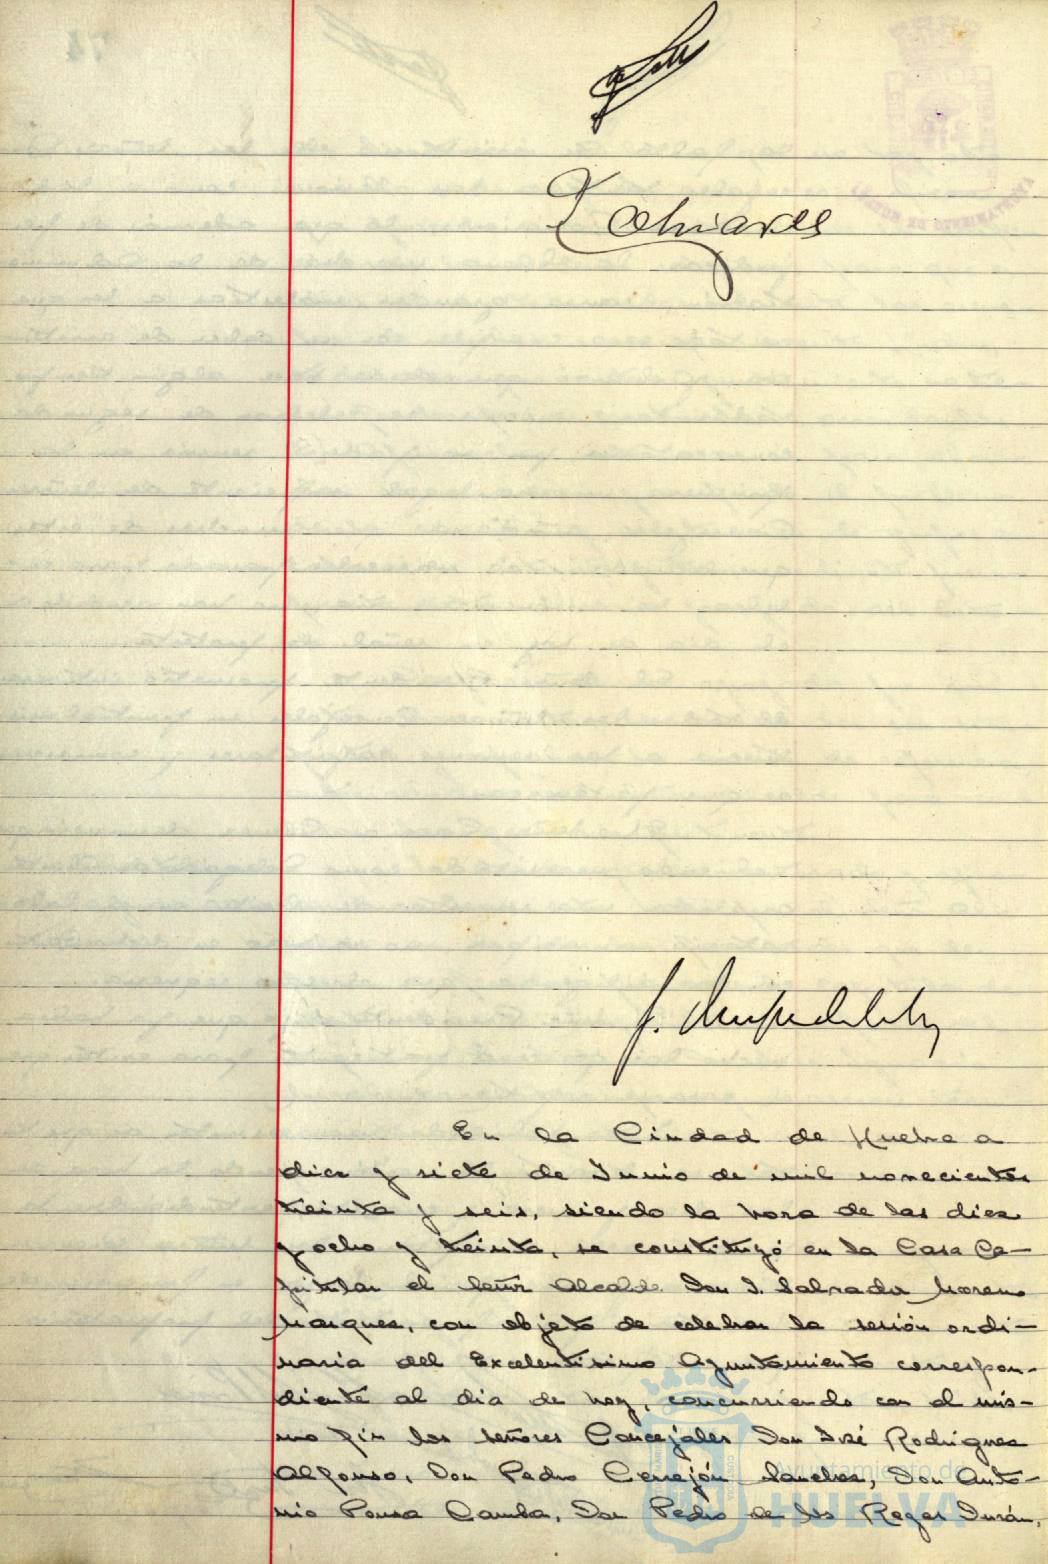 En la Ciudad de Huelva a
diez y siete de Junio de mil novecientos
treinta y seis, siendo la hora de las diez
y ocho y treinta, se constituyó en la Casa Ca-
pitular el Señor Alcalde Don J. Salvador Moreno
Marquez, con objeto de celebrar la sesión ordi-
naria del Excelentísimo Ayuntamiento correspon-
diente al dia de hoy, concurriendo con el mis-
mo fin los señores Concejales Don José Rodriguez
Alfonso, Don Pedro Cerrejón Sanchez, Don Anto-
nio Ponsa Don Pedro de los Reyes Durán,
Ayuntamiento de
HUELVA